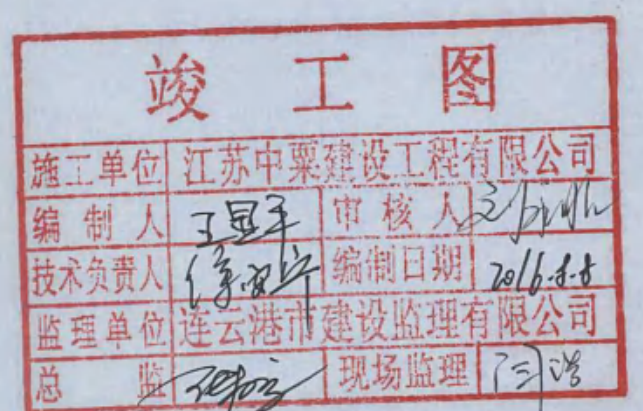 竣工图
施工单位 江苏中粟建设工程有限公司
编制人 王显平 审核人
技术负责人 编制日期 2016.8.8
监理单位 连云港市建设监理有限公司
总监 现场监理 闫浩